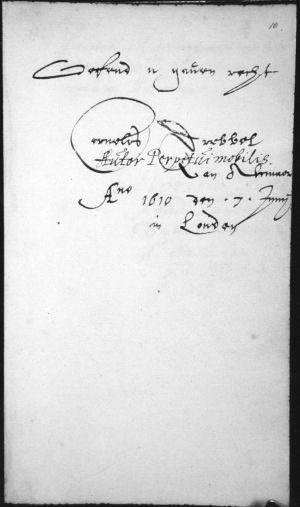 10.
Gekend u gauen recht
Cornelis Drebbel
Autor Perpetui mobilis.
van Alcmaer
Ano 1610 den . 7 . Junij
in Londen